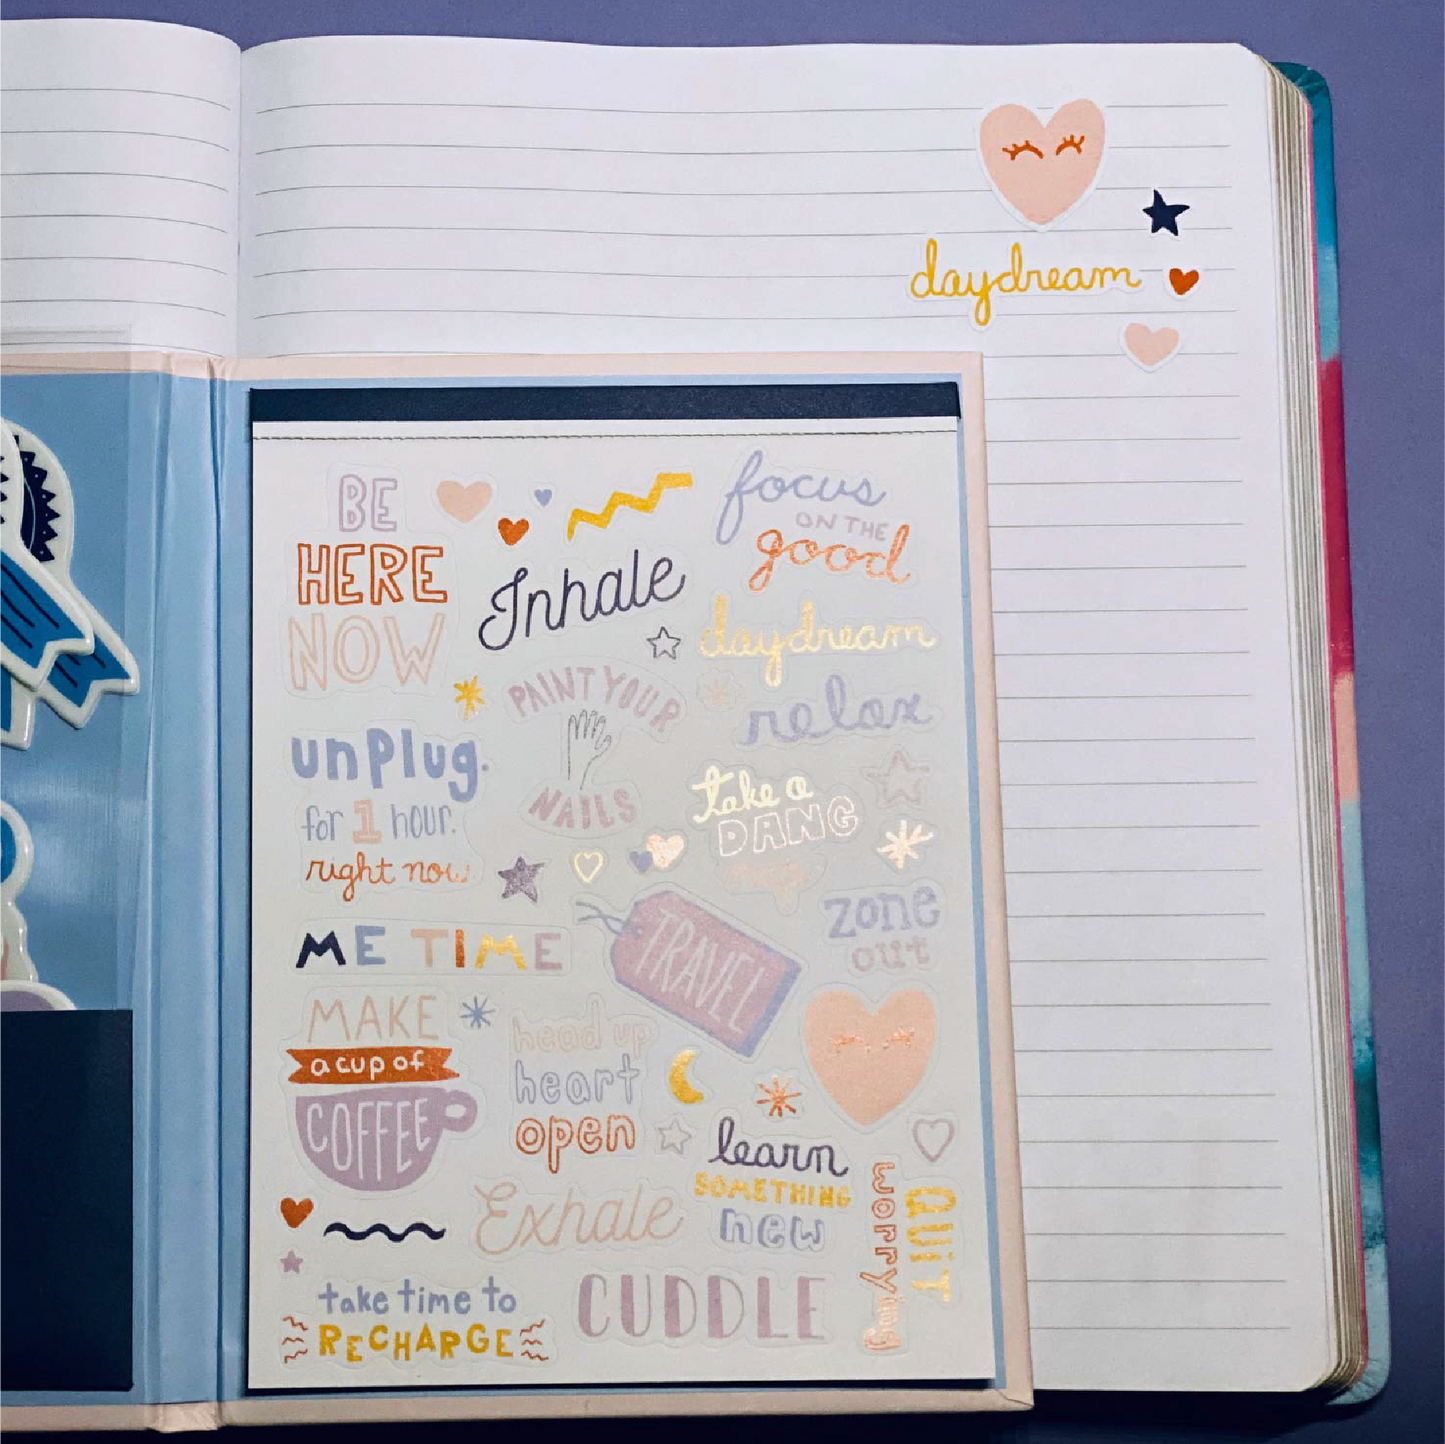 daydream
BE
HERE
NOW
focus
ON THE
good
Inhale
daydream
PAINT YOUR
NAILS
relax
unplug.
for 1 hour.
right now
take a
DANG
zone
out
TRAVEL
ME TIME
MAKE
a cup of
COFFEE
head up
heart
open
learn
SOMETHING
new
Exhale
QUIT
worrying
take time to
RECHARGE
CUDDLE